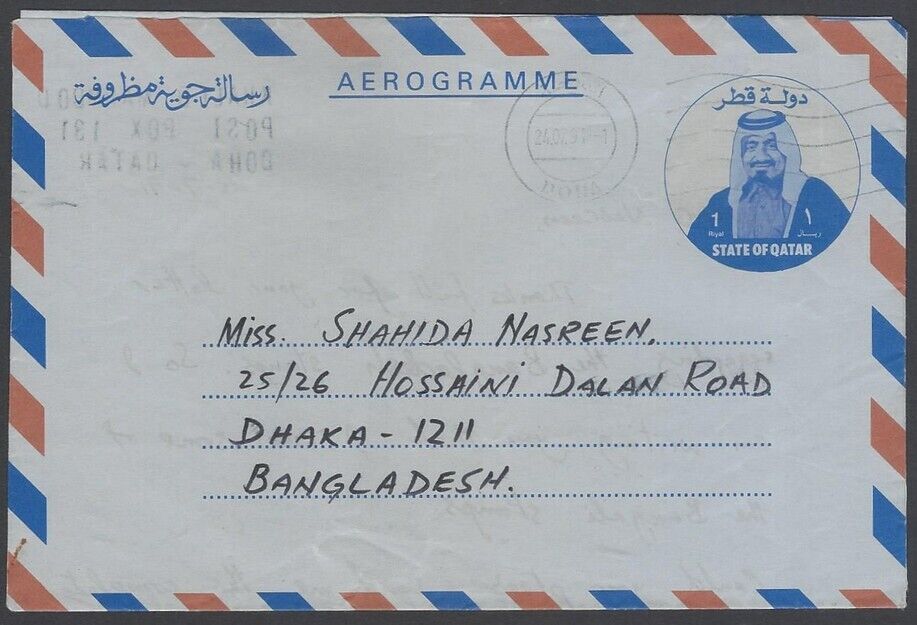 AEROGRAMME
رسالة جوية مظروفة
دولة قطر
1 ١
Riyal ريال
STATE OF QATAR
POST BOX 131
DOHA - QATAR
DOHA
Miss. SHAHIDA NASREEN.
25/26 HOSSAINI DALAN ROAD
DHAKA - 1211
BANGLADESH.